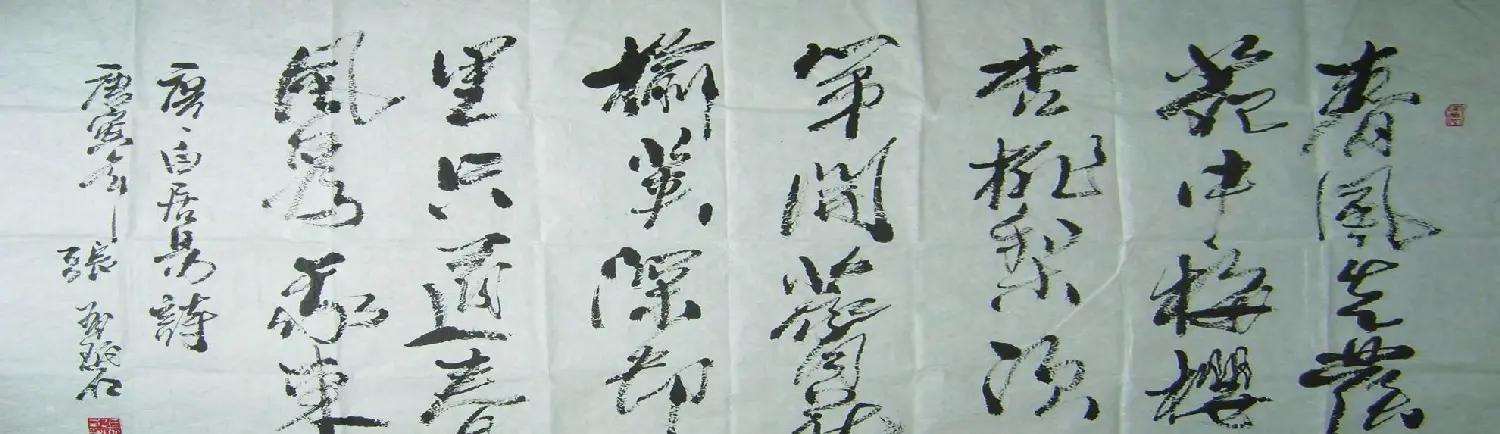 春風先發
苑中梅櫻
杏桃梨次
第開薺花
榆莢深邨
里只道春
風為我來
唐、白居易詩
庚寅年 張